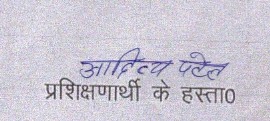 आदित्य पटेल
प्रशिक्षणार्थी के हस्ता0